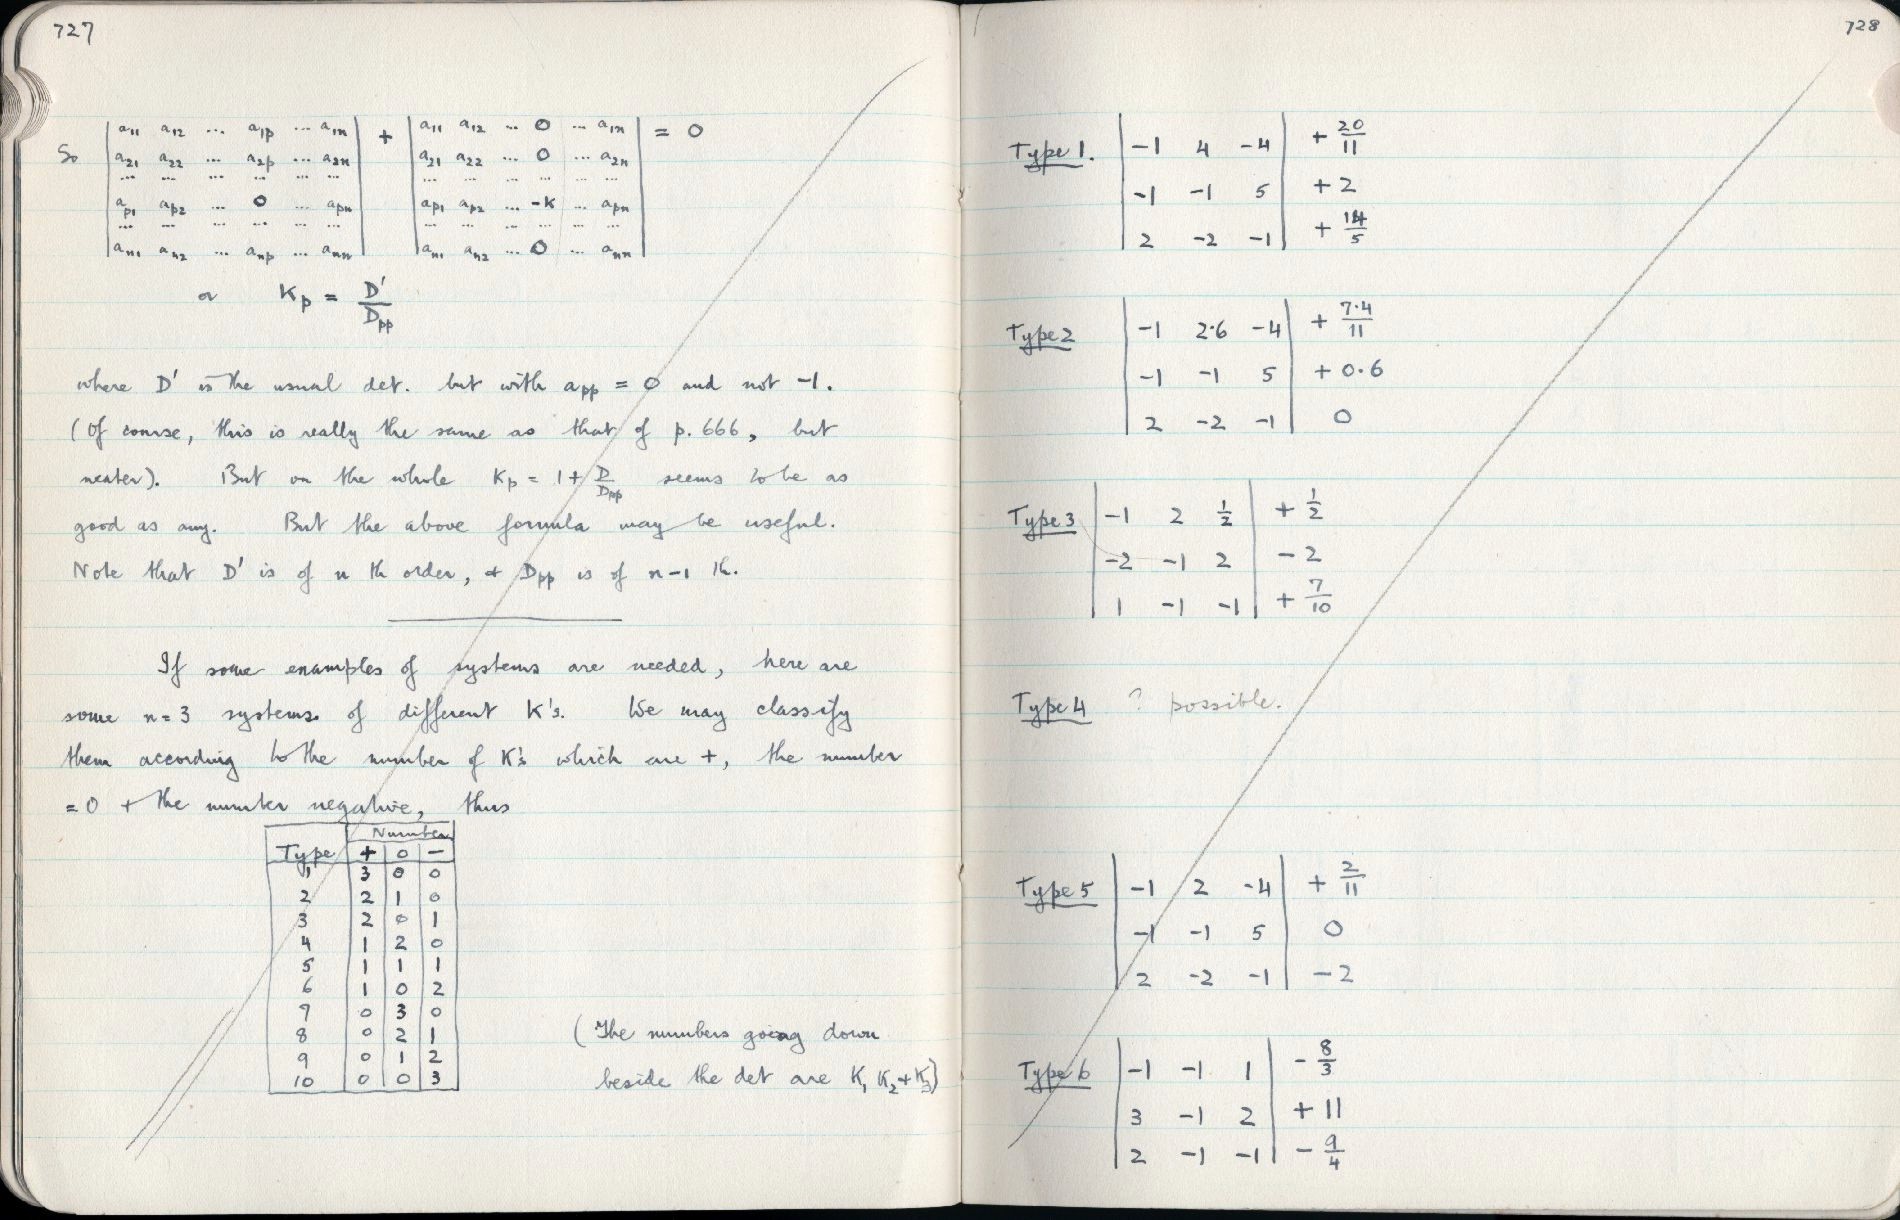 727
So | a11 a12 ... a1p ... a1n | + | a11 a12 ... 0 ... a1n | = 0
| a21 a22 ... a2p ... a2n | | a21 a22 ... 0 ... a2n |
| ... ... ... ... ... ... | | ... ... ... ... ... ... |
| ap1 ap2 ... 0 ... apn | | ap1 ap2 ... -K ... apn |
| ... ... ... ... ... ... | | ... ... ... ... ... ... |
| an1 an2 ... anp ... ann | | an1 an2 ... 0 ... ann |
or Kp = D'/Dpp
where D' is the usual det. but with app = 0 and not -1.
(Of course, this is really the same as that of p. 666, but
neater). But on the whole Kp = 1 + D/Dpp seems to be as
good as any. But the above formula may be useful.
Note that D' is of n th order, + Dpp is of n-1 th.
If some examples of systems are needed, here are
some n=3 systems of different K's. We may classify
them according to the number of K's which are +, the number
=0 + the number negative, thus
Number
Type + 0 -
1 3 0 0
2 2 1 0
3 2 0 1
4 1 2 0
5 1 1 1
6 1 0 2
7 0 3 0
8 0 2 1
9 0 1 2
10 0 0 3
(The numbers going down
beside the det are K1 K2 + K3)
728
Type 1. | -1 4 -4 | + 20/11
| -1 -1 5 | + 2
| 2 -2 -1 | + 14/5
Type 2 | -1 2·6 -4 | + 7·4/11
| -1 -1 5 | + 0·6
| 2 -2 -1 | 0
Type 3 | -1 2 ½ | + ½
| -2 -1 2 | - 2
| 1 -1 -1 | + 7/10
Type 4 ? possible.
Type 5 | -1 2 -4 | + 2/11
| -1 -1 5 | 0
| 2 -2 -1 | - 2
Type 6 | -1 -1 1 | - 8/3
| 3 -1 2 | + 11
| 2 -1 -1 | - 9/4